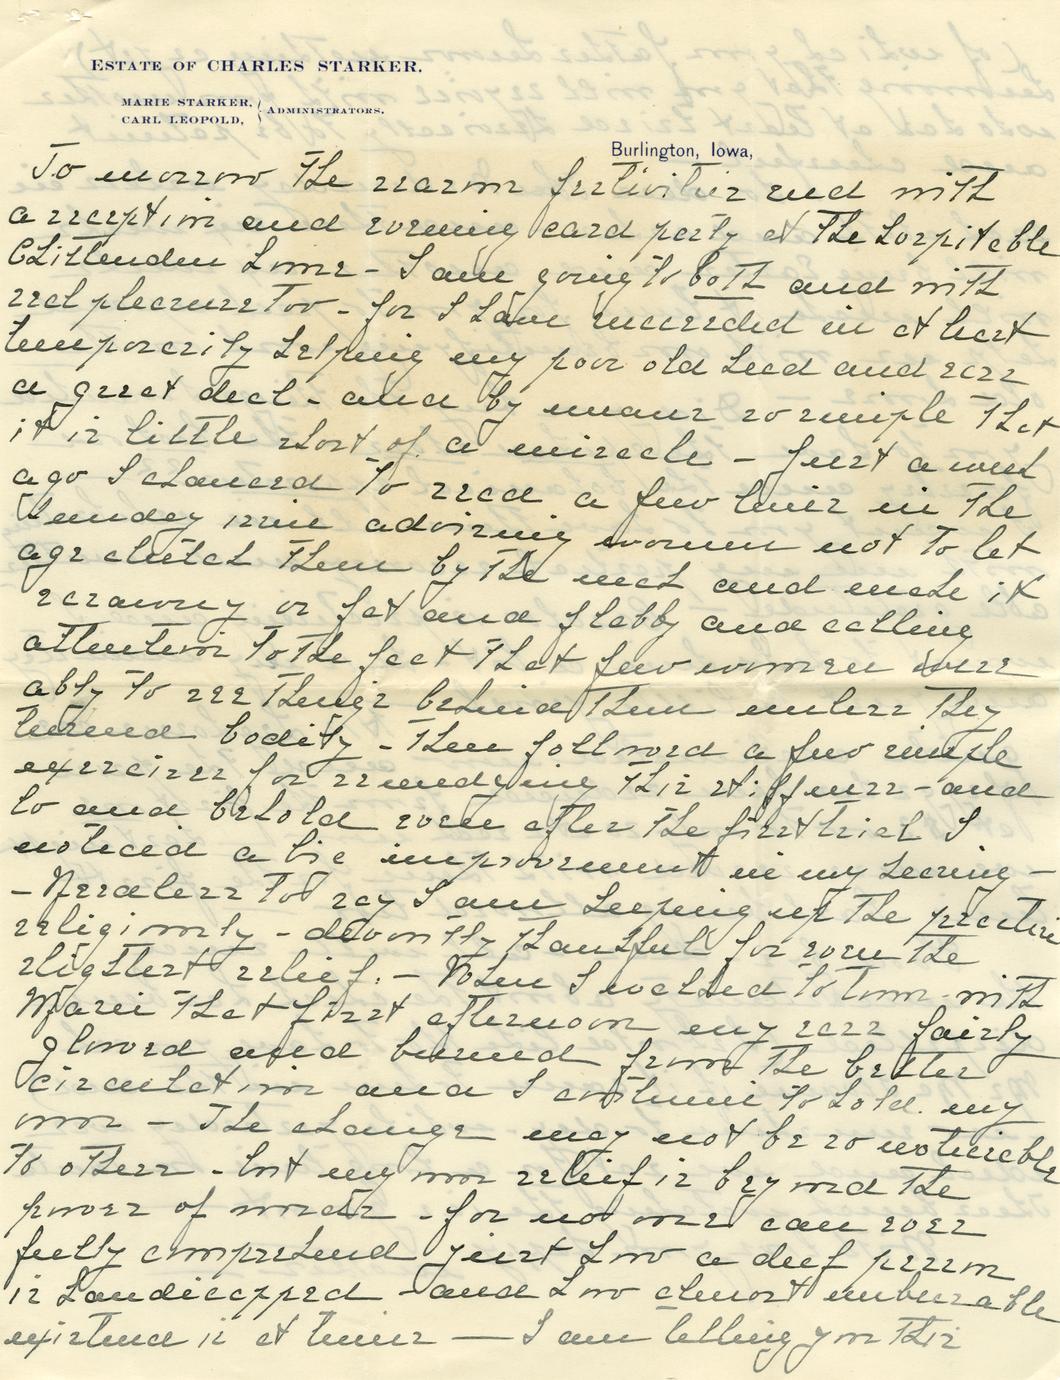 ESTATE OF CHARLES STARKER.
MARIE STARKER,
CARL LEOPOLD,
ADMINISTRATORS.
Burlington, Iowa,
To morrow the season festivities end with
a reception and evening card party at the hospitable
Chittenden home - I am going to both and with
real pleasure too - for I have succeeded in at least
temporarily helping my poor old head and ears
a great deal - and by means so simple that
it is little short of a miracle - Just a week
ago I chanced to read a few lines in the
Sunday advising women not to let
age clutch them by the neck and make it
scrawny or fat and flabby and calling
attention to the fact that few women were
ably to see things behind them unless they
turned bodily - Then followed a few simple
exercises for remedying this stiffness - and
lo and behold even after the first trial I
noticed a big improvement in my hearing -
- Needless to say I am keeping up the practice
religiously - devoutly thankful for even the
slightest relief. - When I walked to town with
Marie that first afternoon my ears fairly
glowed and burned from the better
circulation and I continue to hold my
own - The change may not be so noticeable
to others - but my own relief is beyond the
power of words - for no one can ever
fully comprehend just how a deaf person
is handicapped - and how almost unbearable
existence is at times - I am telling you this